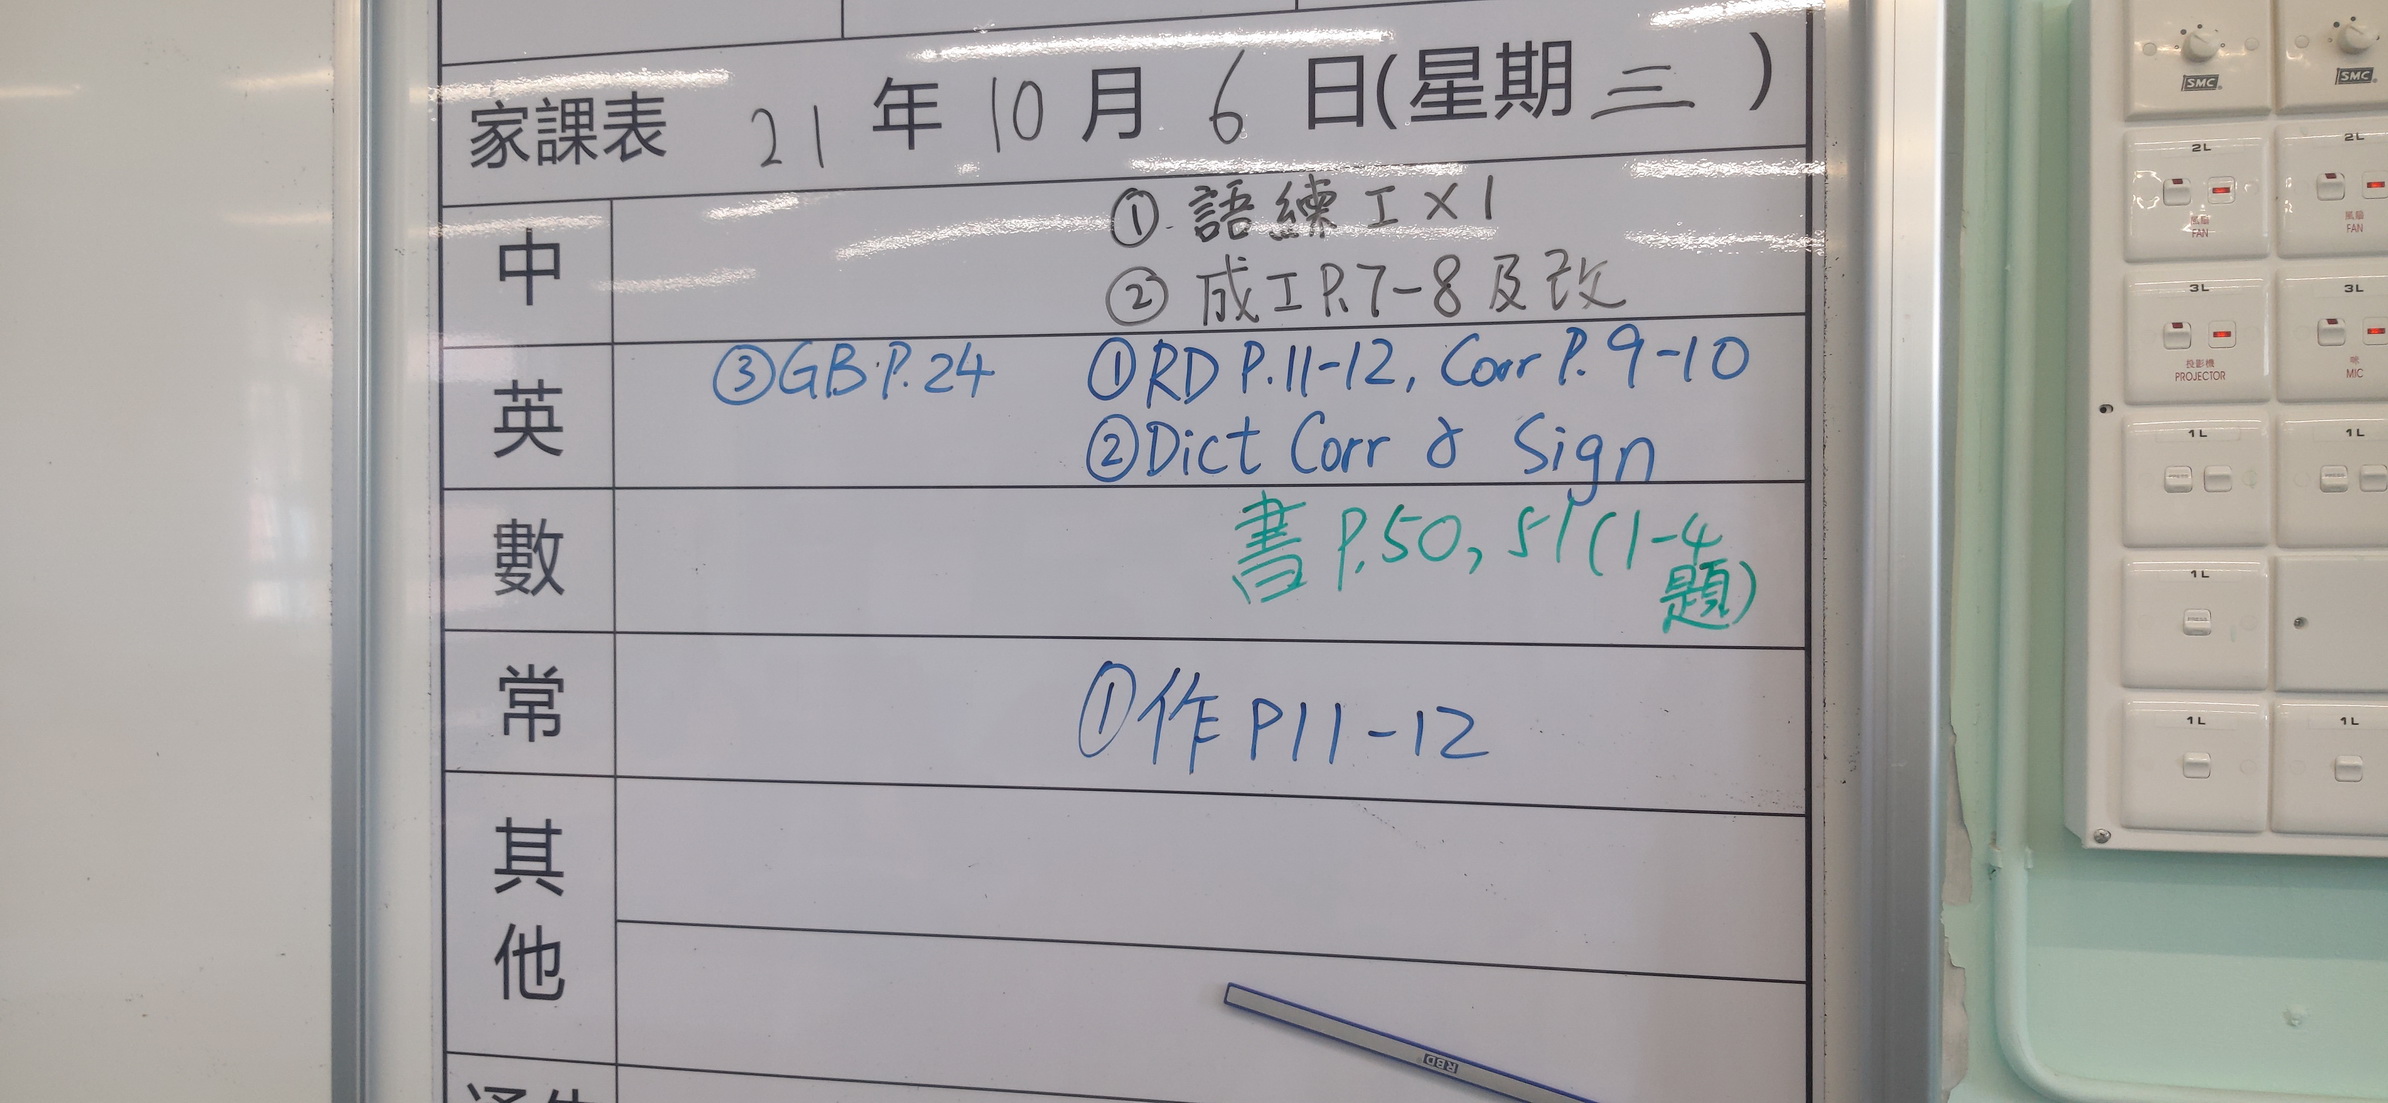 家課表 21 年 10 月 6 日(星期 三 )
中
① 語練工×1
② 成工P.7-8及改
英
① RD P.11-12, Corr P. 9-10
② Dict Corr & Sign
③ GB P.24
數
書 P.50, 51 (1-4
題)
常
① 作 P11-12
其
他
RBD
SMC
SMC
2L
2L
風扇
FAN
風扇
FAN
3L
3L
投影機
PROJECTOR
咪
MIC
1L
1L
1L
1L
1L